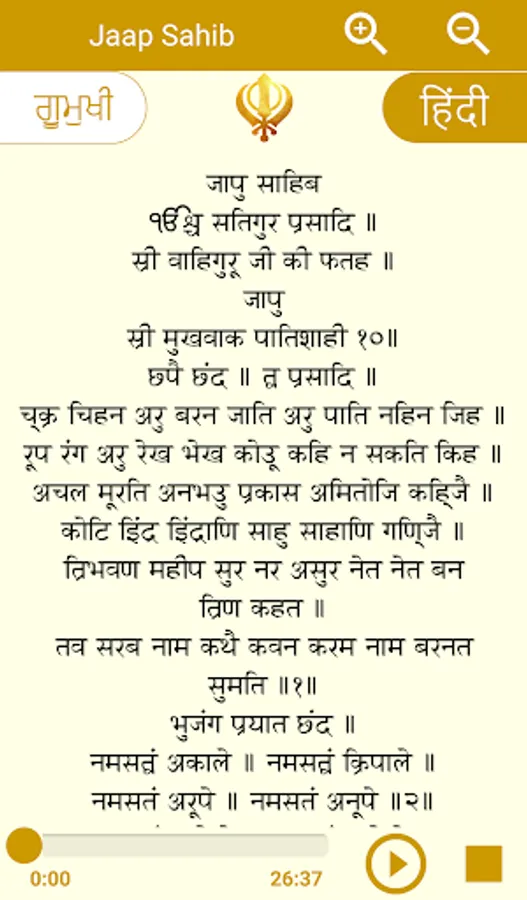 Jaap Sahib
ਗੁਮੁਖੀ
हिंदी
जापु साहिब
ੴ सतिगुर प्रसादि ॥
स्री वाहिगुरू जी की फतह ॥
जापु
स्री मुखवाक पातिशाही १०॥
छपै छंद ॥ त्व प्रसादि ॥
च्क्र चिहन अरु बरन जाति अरु पाति नहिन जिह ॥
रूप रंग अरु रेख भेख कोऊ कहि न सकति किह ॥
अचल मूरति अनभउ प्रकास अमितोजि कहि्जै ॥
कोटि इंद्र इंद्राणि साहु साहाणि गणि्जै ॥
त्रिभवण महीप सुर नर असुर नेत नेत बन
त्रिण कहत ॥
तव सरब नाम कथै कवन करम नाम बरनत
सुमति ॥१॥
भुजंग प्रयात छंद ॥
नमसत्वं अकाले ॥ नमसत्वं क्रिपाले ॥
नमसतं अरूपे ॥ नमसतं अनूपे ॥२॥
0:00
26:37